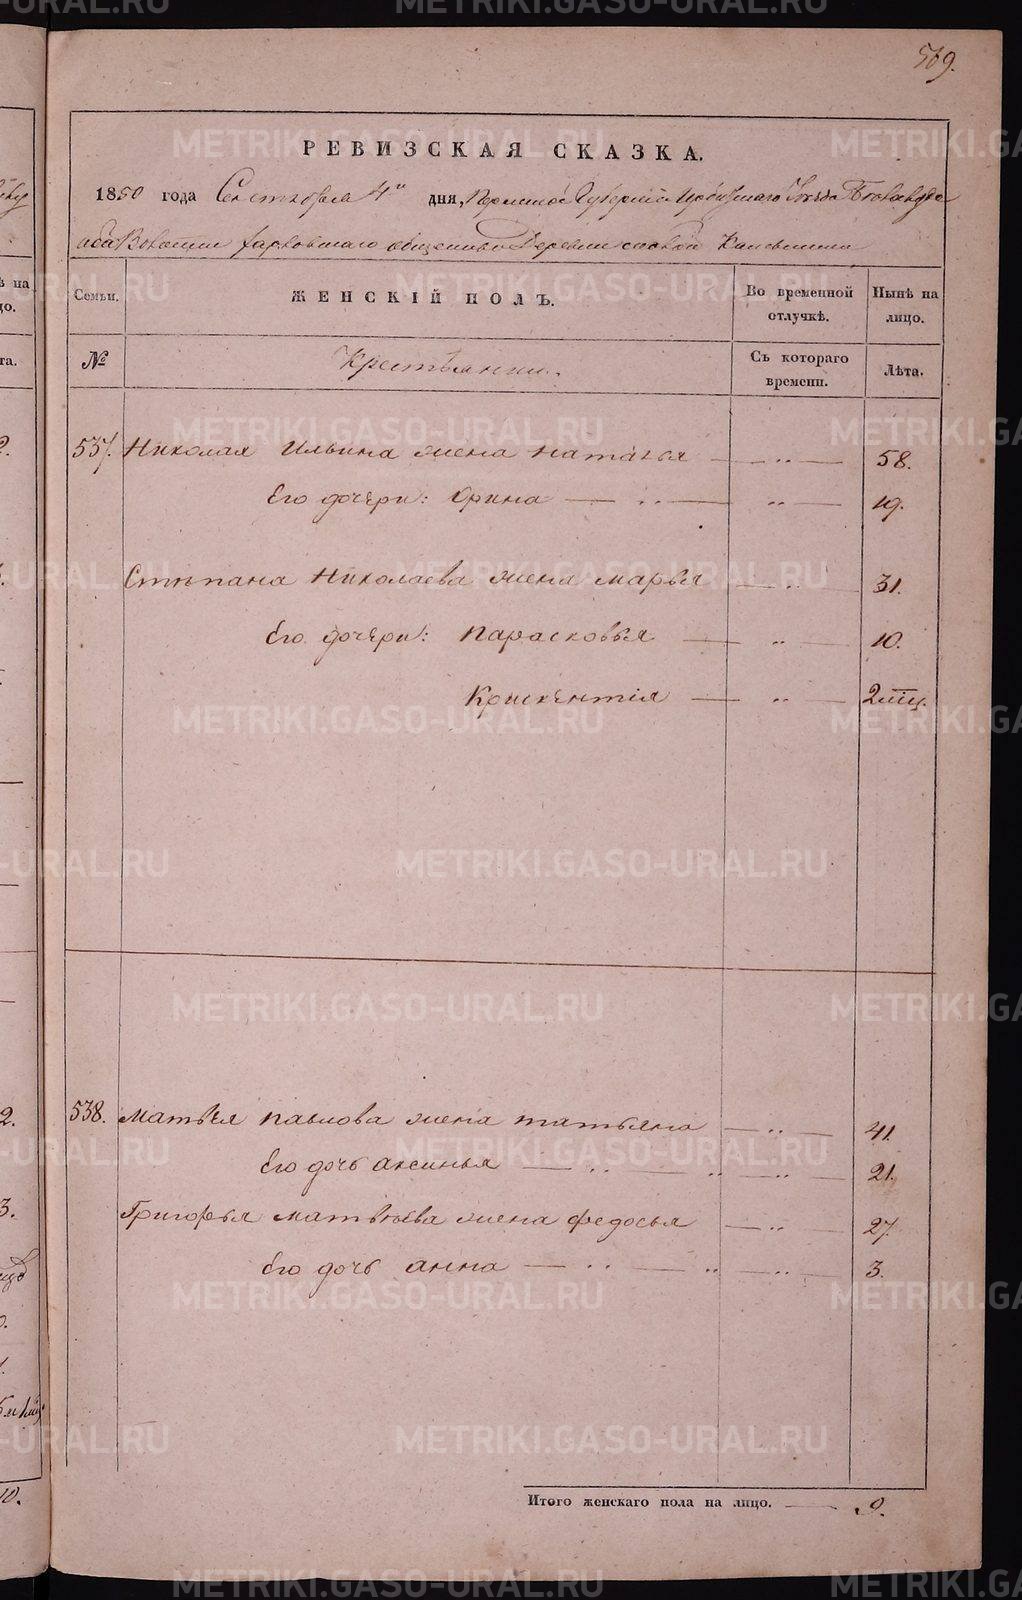 METRIKI.GASO-URAL.RU
569.
РЕВИЗСКАЯ СКАЗКА.
1850 года Сентября 4го дня, Пермской Губернии Ирбитскаго Уезда
Волости общества Деревни
Семьи. ЖЕНСКІЙ ПОЛЪ. Во временной отлучкѣ. Нынѣ на лицо.
№ Крестьянки. Съ котораго времени. Лѣта.
537. Николая Ильина жена Наталья — „ — 58.
Его дочери: Орина — „ — „ — 19.
Степана Николаева жена Марья — „ — 31.
Его дочери: Парасковья — „ — 10.
— „ — 2 мц.
538. Матвея Павлова жена Татьяна — „ — 41.
Его дочь Аксинья — „ — „ — „ — 21.
Григорья Матвѣева жена Федосья — „ — 27.
Его дочь Анна — „ — „ — „ — 3.
Итого женскаго пола на лицо. — 9.